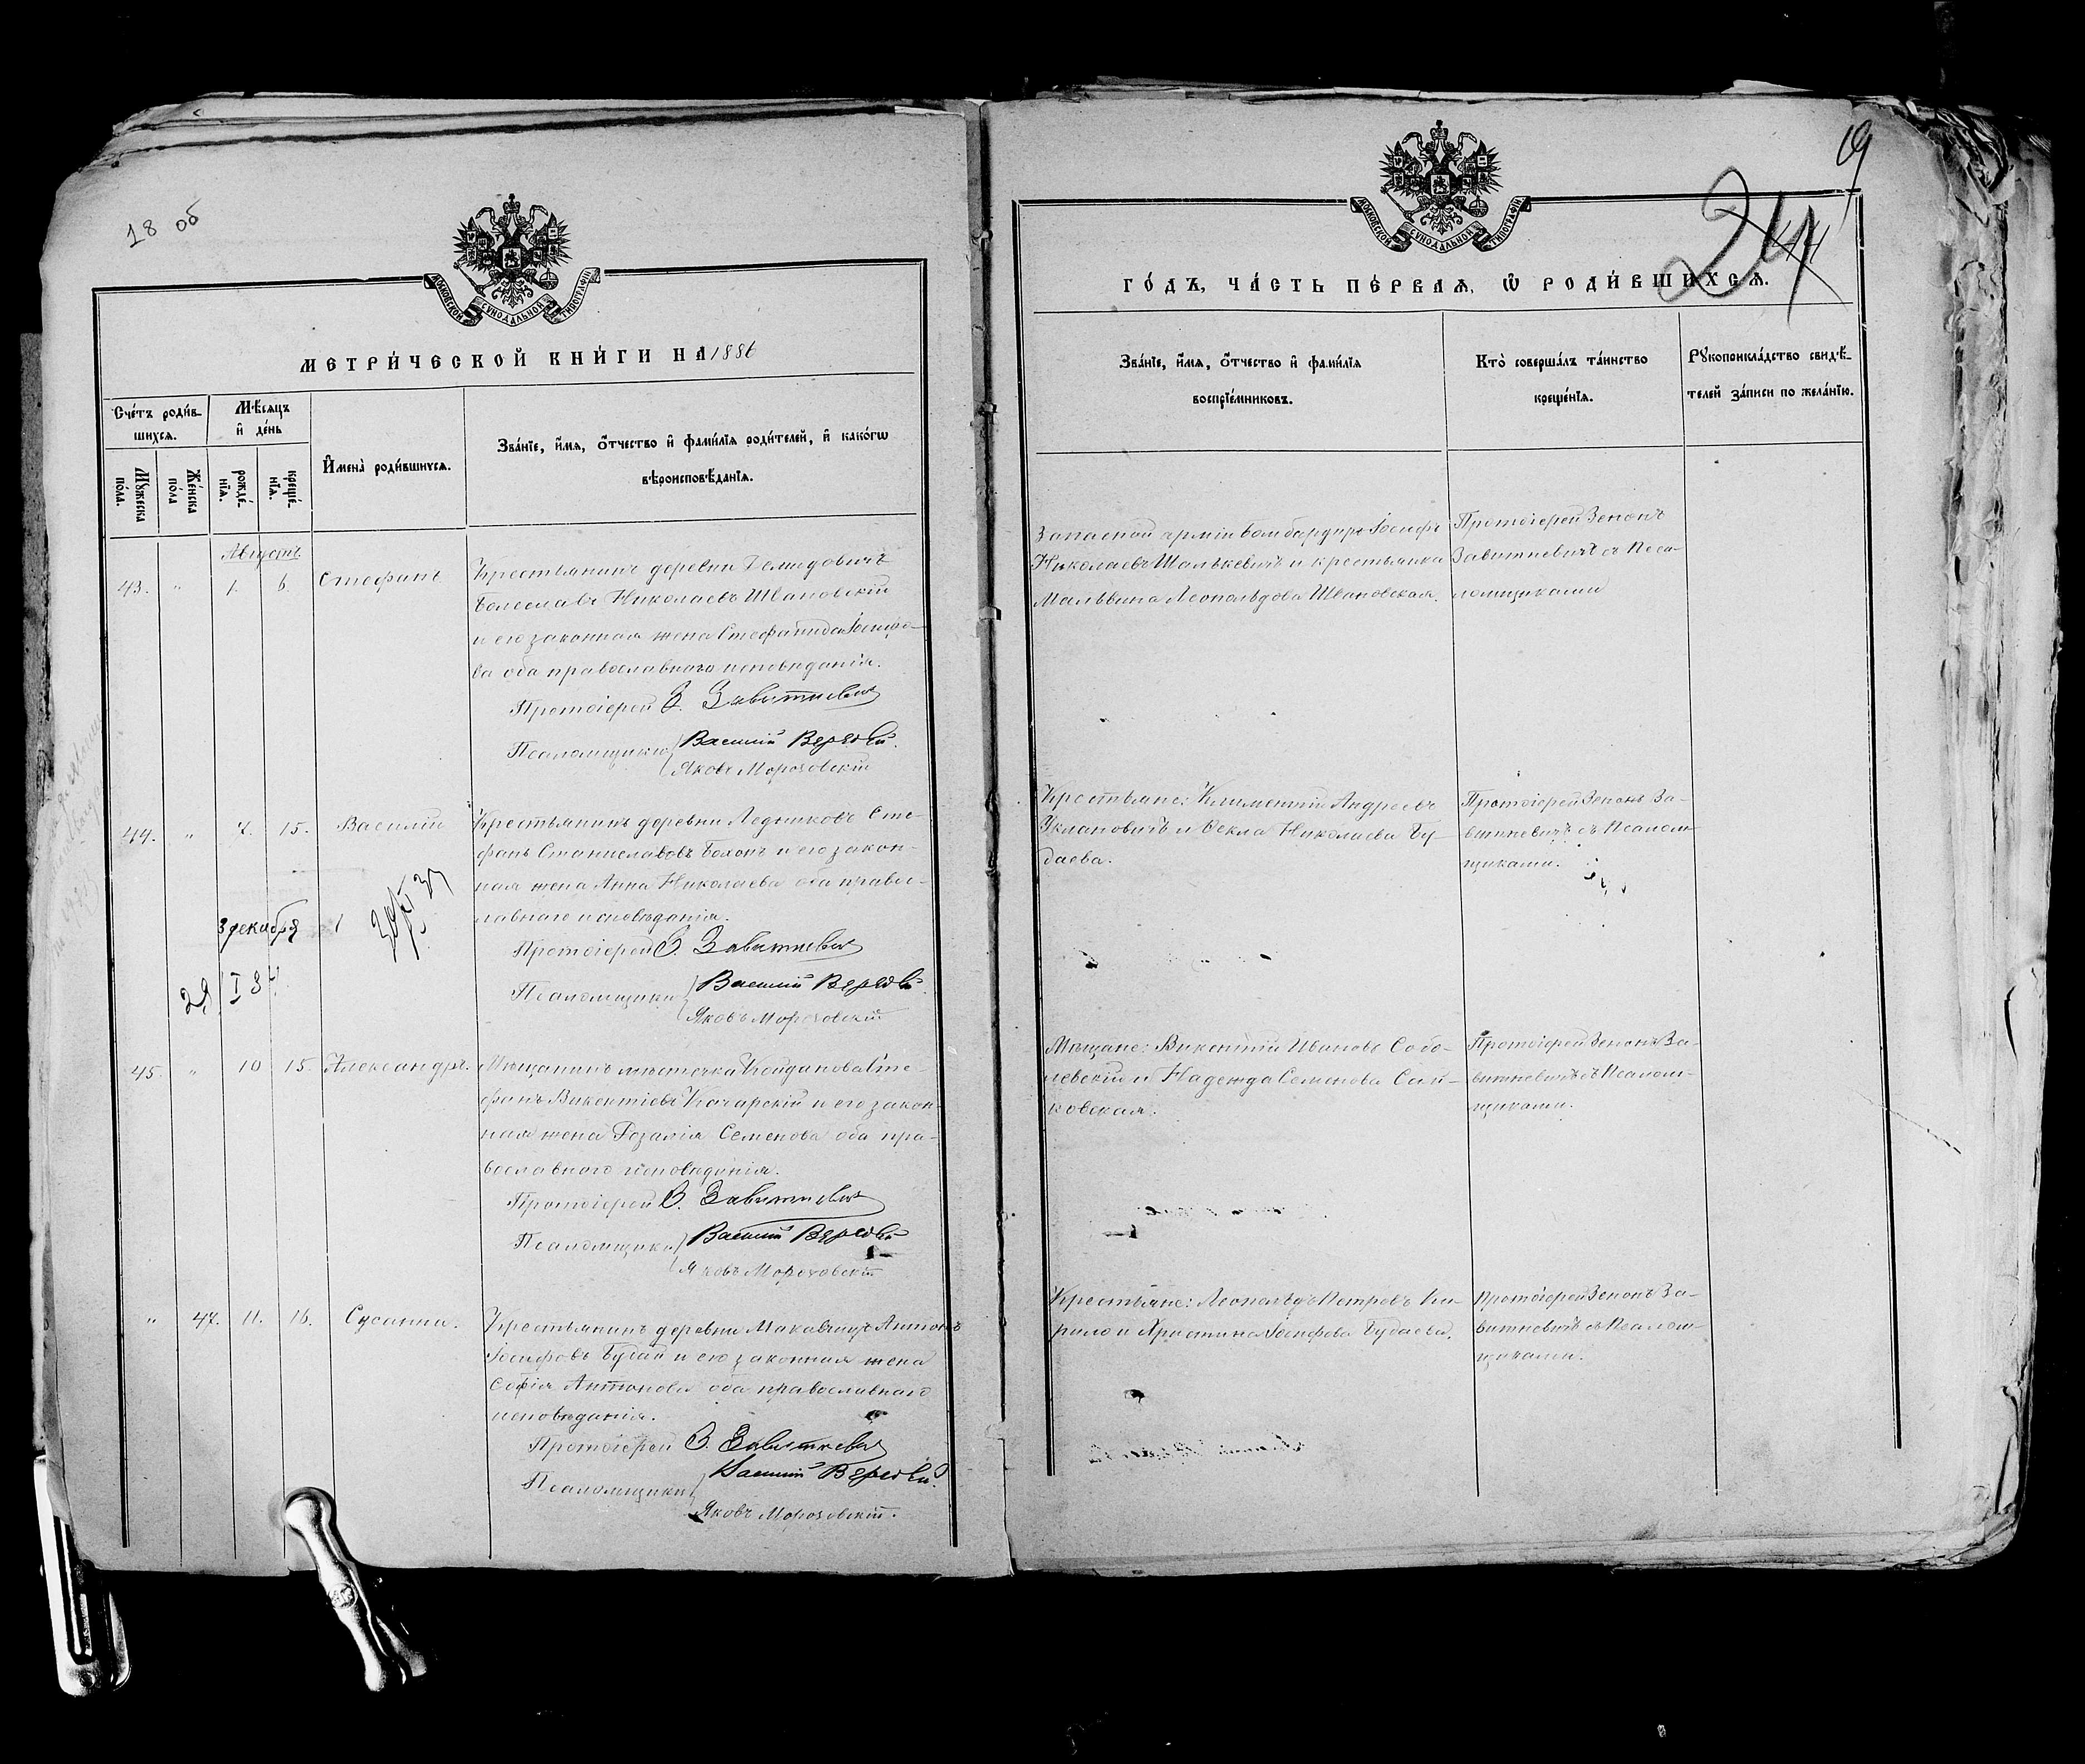 18 об
МОСКОВСКОЙ СѴНОДАЛЬНОЙ ТИПОГРАФІИ
МЕТРИ́ЧЕСКОЙ КНИ́ГИ НА 1886
Сче́тъ роди́в-
шихсѧ.
Мѣ́сѧцъ
и҆ де́нь
И҆мена̀ роди́вшихсѧ.
Зва́нїе, и҆́мѧ, ѻ҆́тчество и҆ фамі́лїѧ роди́телей, и҆ како́гѡ
вѣроисповѣ́данїѧ.
Мꙋ́жеска
по́ла.
Же́нска
по́ла
рожде́-
нїѧ.
креще́-
нїѧ.
Августъ.
43. " 1. 6. Стефанъ
Крестьянинъ деревни Демидовичъ
Болеславъ Николаевъ Швановскій
и его законная жена Стефанида Іосифо-
ва оба православнаго исповѣданія.
Протоіерей З. Завитневичъ
Псаломщики Василій
Яковъ Мороховскій
44. " 7. 15. Василій
Крестьянинъ деревни Ледниковъ Сте-
фанъ Станиславовъ Бохонъ и его закон-
ная жена Анна Николаева оба право-
славнаго исповѣданія.
3 декабря
Протоіерей З. Завитневичъ
29 I 37
Псаломщики Василій
Яковъ Мороховскій
45. " 10 15. Александръ.
Мѣщанинъ мѣстечка Койданова Сте-
фанъ Викентіевъ Качарскій и его закон-
ная жена Розалія Семенова оба пра-
вославнаго исповѣданія.
Протоіерей З. Завитневичъ
Псаломщики Василій
Яковъ Мороховскій
" 47. 11. 16. Сусанна.
Крестьянинъ деревни Макавчицъ Антонъ
Іосифовъ Будай и его законная жена
Софія Антонова оба православнаго
исповѣданія.
Протоіерей З. Завитневичъ
Псаломщики Василій
Яковъ Мороховскій.
19
24
МОСКОВСКОЙ СѴНОДАЛЬНОЙ ТИПОГРАФІИ
ГО́ДЪ, ЧА́СТЬ ПЕ́РВАѦ, Ѡ҆ РОДИ́ВШИХСѦ.
Зва́нїе, и҆́мѧ, ѻ҆́тчество и҆ фамі́лїѧ
воспрїе́мниковъ.
Кто̀ соверша́лъ та́инство
креще́нїѧ.
Рꙋкоприкла́дство свидѣ́-
телей за́писи по жела́нїю.
Запасной арміи бомбардиръ Іосифъ
Николаевъ Шалькевичъ и крестьянка
Мальвина Леопольдова Швановская.
Протоіерей Зенонъ
Завитневичъ съ Пса-
ломщиками
Крестьяне: Климентій Андреевъ
Укланович и Ѳекла Николаева Бу-
даева.
Протоіерей Зенонъ За-
витневичъ съ Псалом-
щиками.
Мѣщане: Викентій Ивановъ Собо-
левскій и Надежда Семенова Сай-
ковская.
Протоіерей Зенонъ За-
витневичъ съ Псалом-
щиками.
Крестьяне: Леопольдъ Петровъ Ки-
рило и Христина Іосифова Будаева.
Протоіерей Зенонъ За-
витневичъ съ Псалом-
щиками.